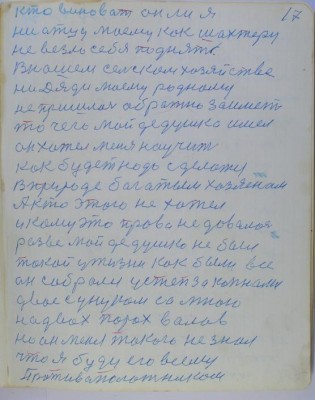 17
кто виноват он ли я
ни атцу моему как шахтеру
не везло себя поднять
В нашем селском хозяйстве
ни Дяди моему родному
не пришлос абратно заимет
то чего мой дедушка имел
он хотел меня научит
как будет надо сделожу
В природе багатым хозяенам
А кто этого не хотел
и кому это право не довалос
разве мой дедушко не был
такой у жизни как были все
он собрали
двое с унуком со мною
на двоих порох валов
но он меня такого не знал
что я буду его всему
Противаположником